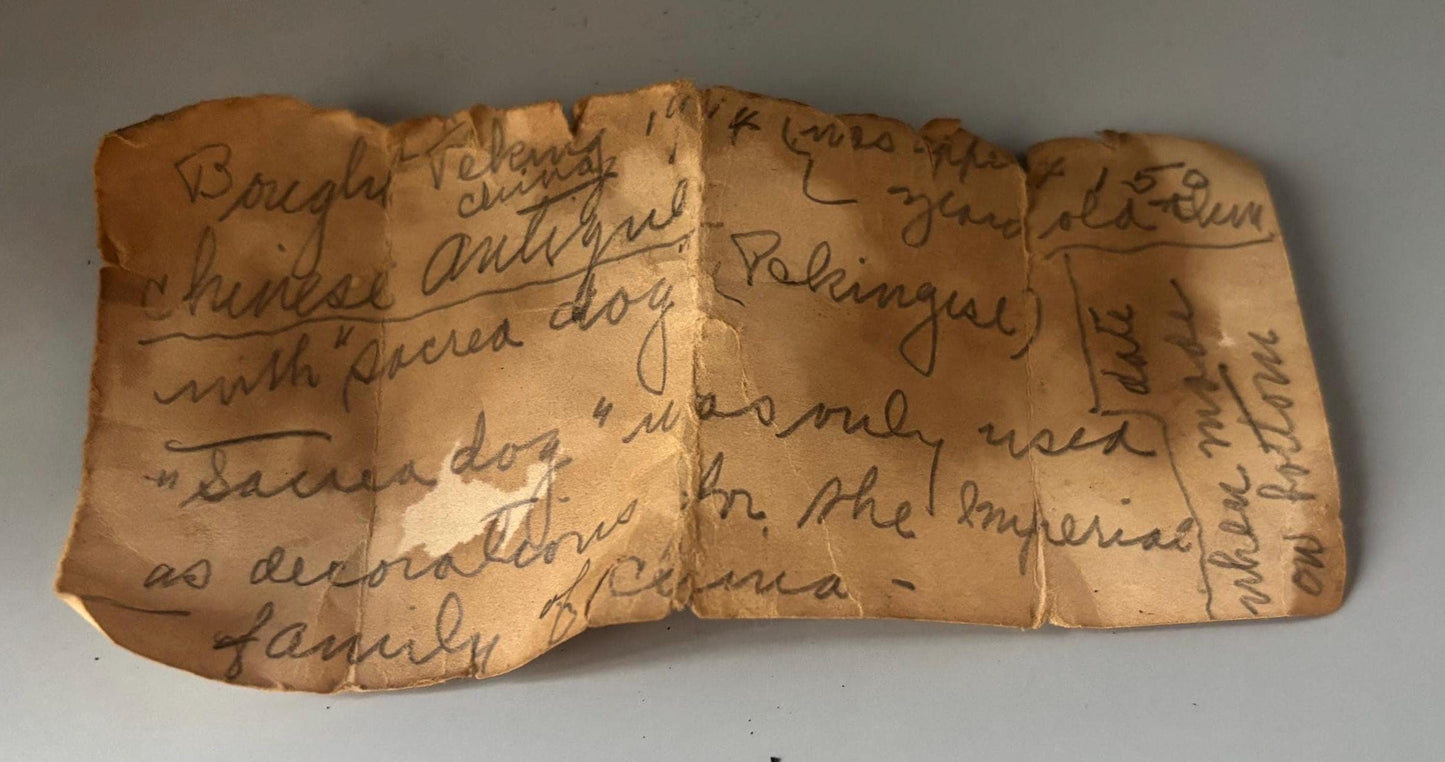 Bought Peking 1914 (was appox 150
China years old then
Chinese Antique
with "sacred dog (Pekingese)
"Sacred dog" was only used
as decorations for the Imperial
family of China -
date
when made
on bottom